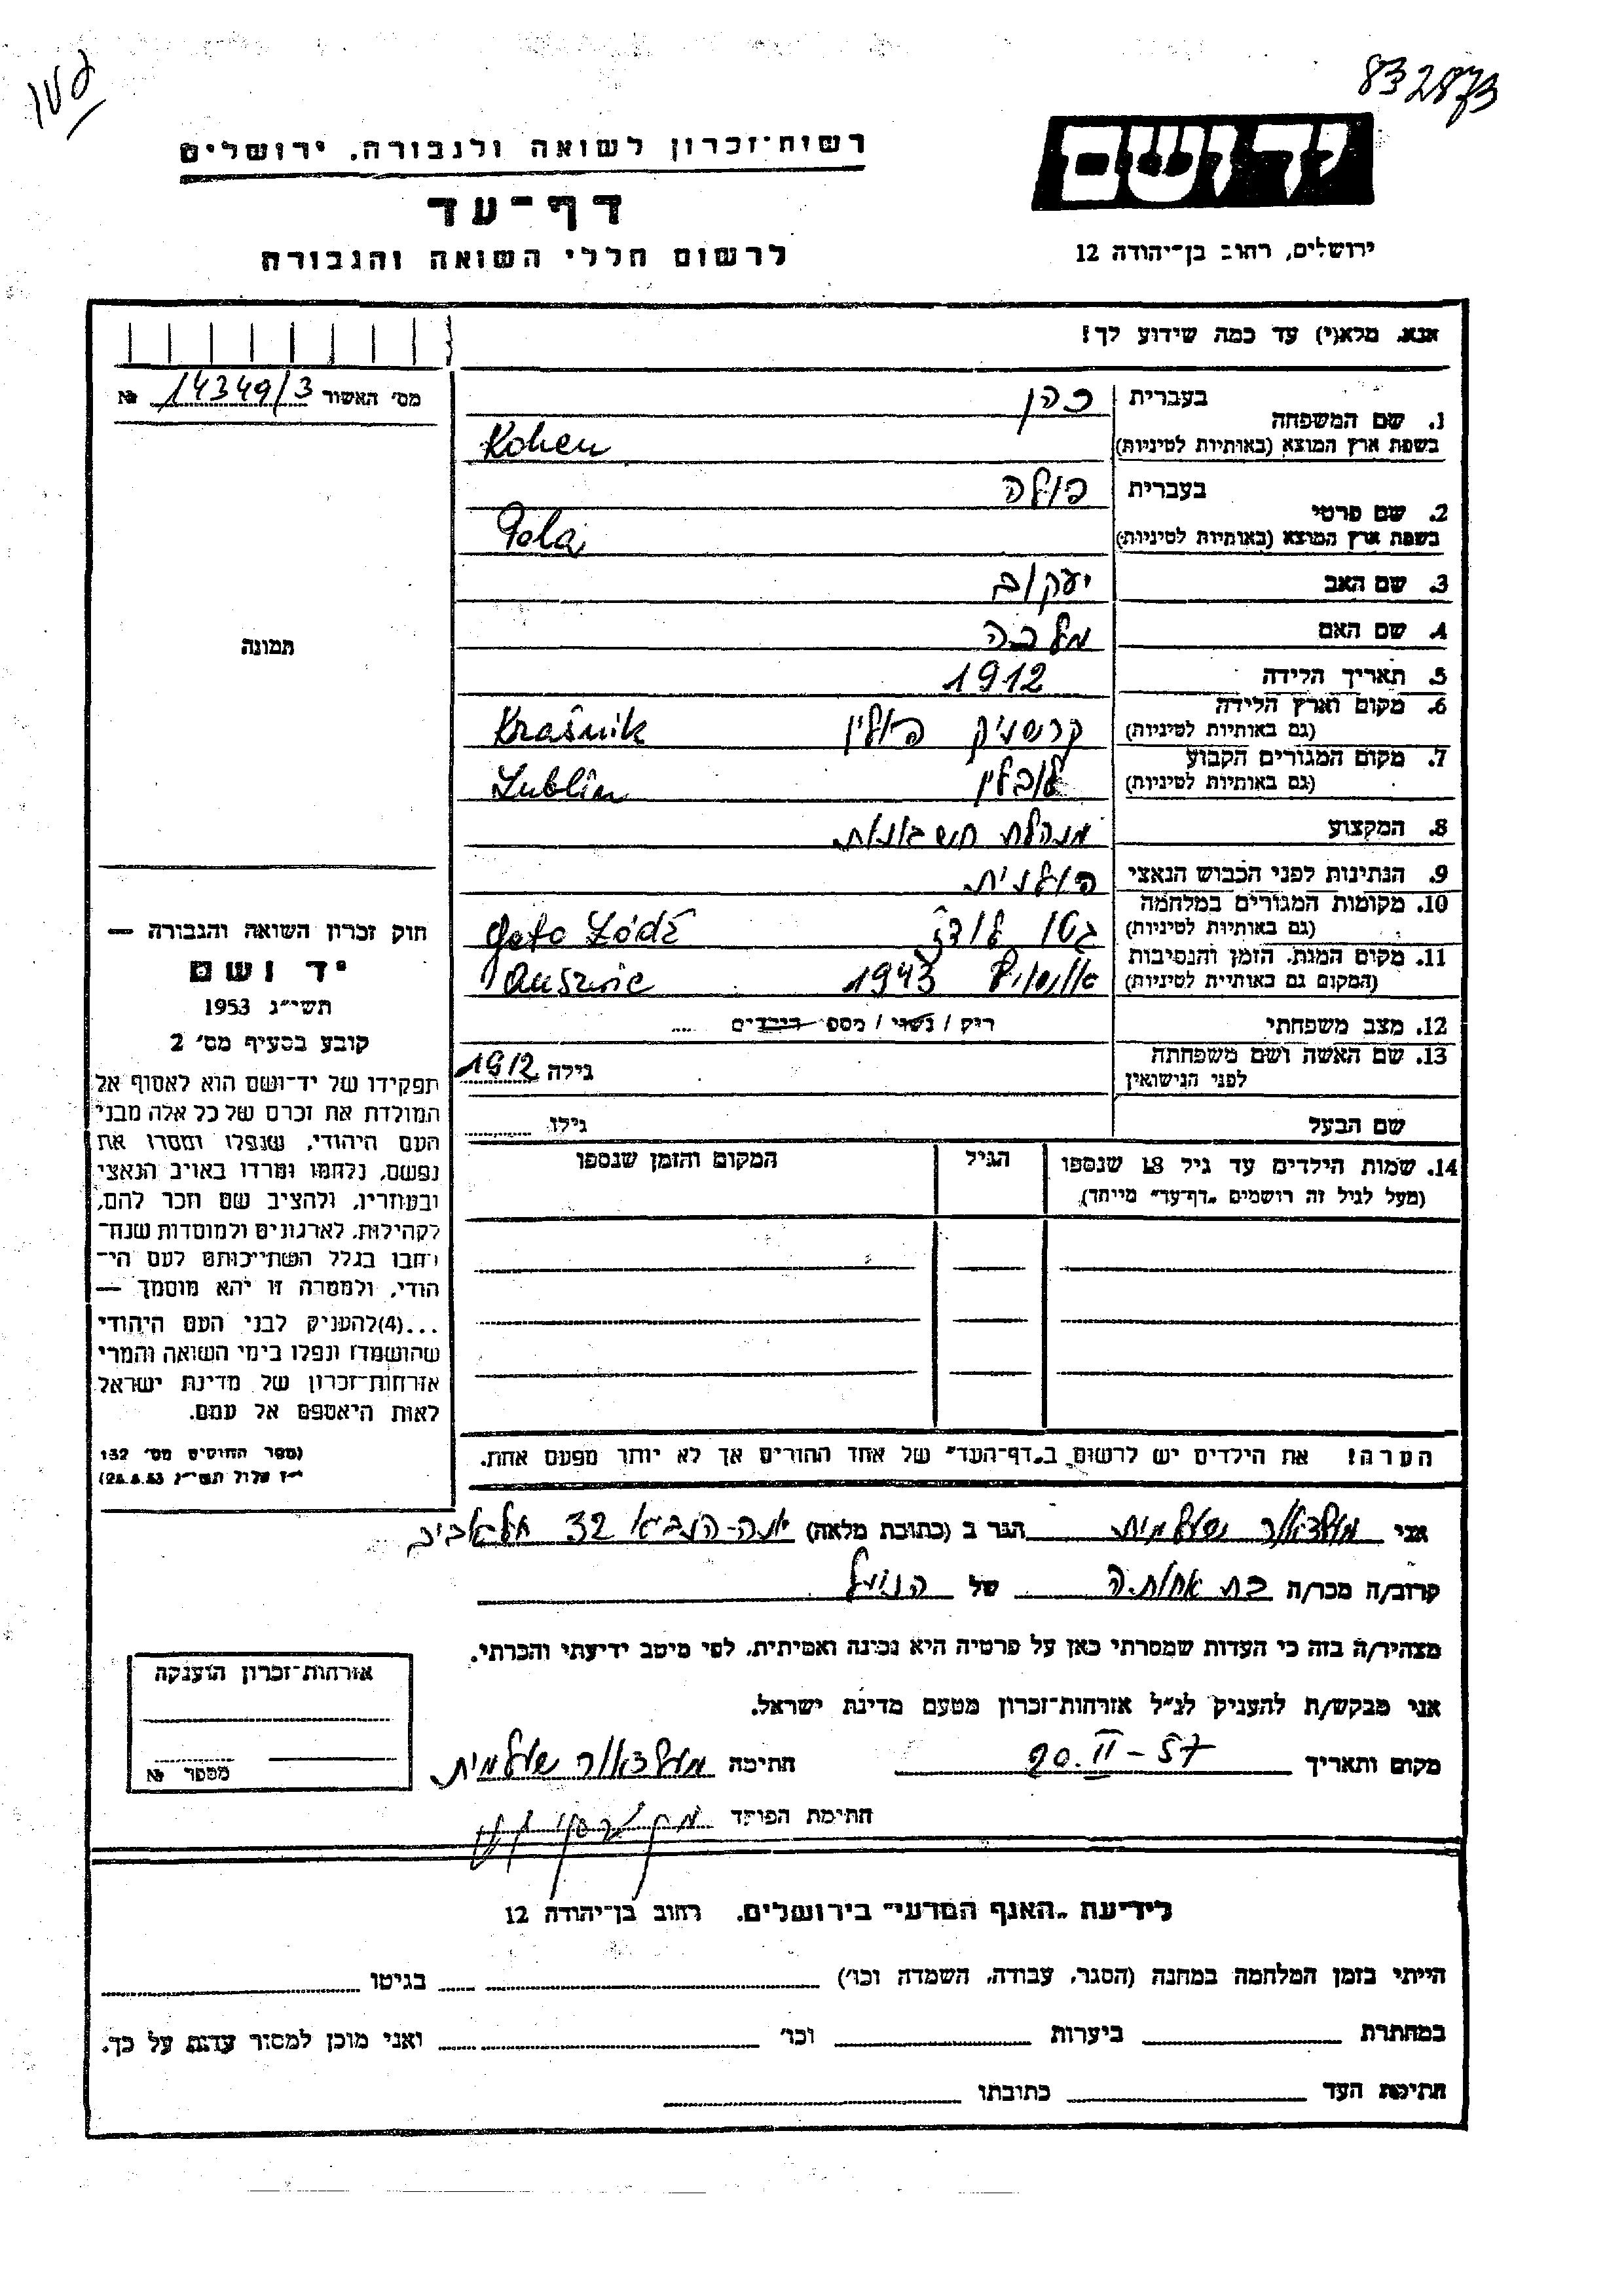 832873
רשות־זכרון לשואה ולגבורה. ירושלים
יד ושם
דף־עד
לרשום חללי השואה והגבורה
ירושלים, רחוב בן־יהודה 12
אנא, מלא(י) עד כמה שידוע לך!
מס׳ האשור № 14349/3
1. שם המשפחה
בעברית כהן
בשפת ארץ המוצא (באותיות לטיניות) Kohen
2. שם פרטי
בעברית פולה
בשפת ארץ המוצא (באותיות לטיניות) Pola
3. שם האב יעקוב
4. שם האם מלכה
5. תאריך הלידה 1912
6. מקום וארץ הלידה
(גם באותיות לטיניות) קרשניק פולין Kraśnik
7. מקום המגורים הקבוע
(גם באותיות לטיניות) לובלין Lublin
8. המקצוע מנהלת חשבונות
9. הנתינות לפני הכבוש הנאצי פולנית
10. מקומות המגורים במלחמה
(גם באותיות לטיניות) גטו לודז Geto Łódź
11. מקום המות, הזמן והנסיבות
(המקום גם באותיות לטיניות) 1943 Auszwic
12. מצב משפחתי רוק / נשוי / מספר הילדים ....
13. שם האשה ושם משפחתה
לפני הנישואין
גילה 1912
שם הבעל
גילו
14. שמות הילדים עד גיל 18 שנספו
(מעל לגיל זה רושמים „דף־עד״ מייחד)
הגיל
המקום והזמן שנספו
הערה! את הילדים יש לרשום ב„דף־העד״ של אחד ההורים אך לא יותר מפעם אחת.
תמונה
חוק זכרון השואה והגבורה —
יד ושם
תשי״ג 1953
קובע בסעיף מס׳ 2
תפקידו של יד־ושם הוא לאסוף אל
המולדת את זכרם של כל אלה מבני
העם היהודי, שנפלו ומסרו את
נפשם, נלחמו ומרדו באויב הנאצי
ובעוזריו, ולהציב שם וזכר להם,
לקהילות, לארגונים ולמוסדות שנח־
רבו בגלל השתייכותם לעם הי־
הודי, ולמטרה זו יהא מוסמך —
...(4)להעניק לבני העם היהודי
שהושמדו ונפלו בימי השואה והמרי
אזרחות־זכרון של מדינת ישראל
לאות היאספם אל עמם.
(ספר החוקים מס׳ 132
י״ז אלול תשי״ג 28.8.53)
אני שולמית הגר ב (כתובת מלאה) יונה-הנביא 32 תל אביב
קרוב/ה מכר/ה בת אחותה של הנ״ל
מצהיר/ה בזה כי העדות שמסרתי כאן על פרטיה היא נכונה ואמיתית, לפי מיטב ידיעתי והכרתי.
אני מבקש/ת להעניק לנ״ל אזרחות־זכרון מטעם מדינת ישראל.
מקום ותאריך 20.II-57 חתימה שולמית
חתימת הפוקד
אזרחות־זכרון הוענקה
מספר №
לידיעת „האגף המדעי״ בירושלים. רחוב בן־יהודה 12
הייתי בזמן המלחמה במחנה (הסגר, עבודה, השמדה וכו׳) בגיטו
במחתרת ביערות וכו׳ ואני מוכן למסור עדות על כך.
חתימת העד כתובתו